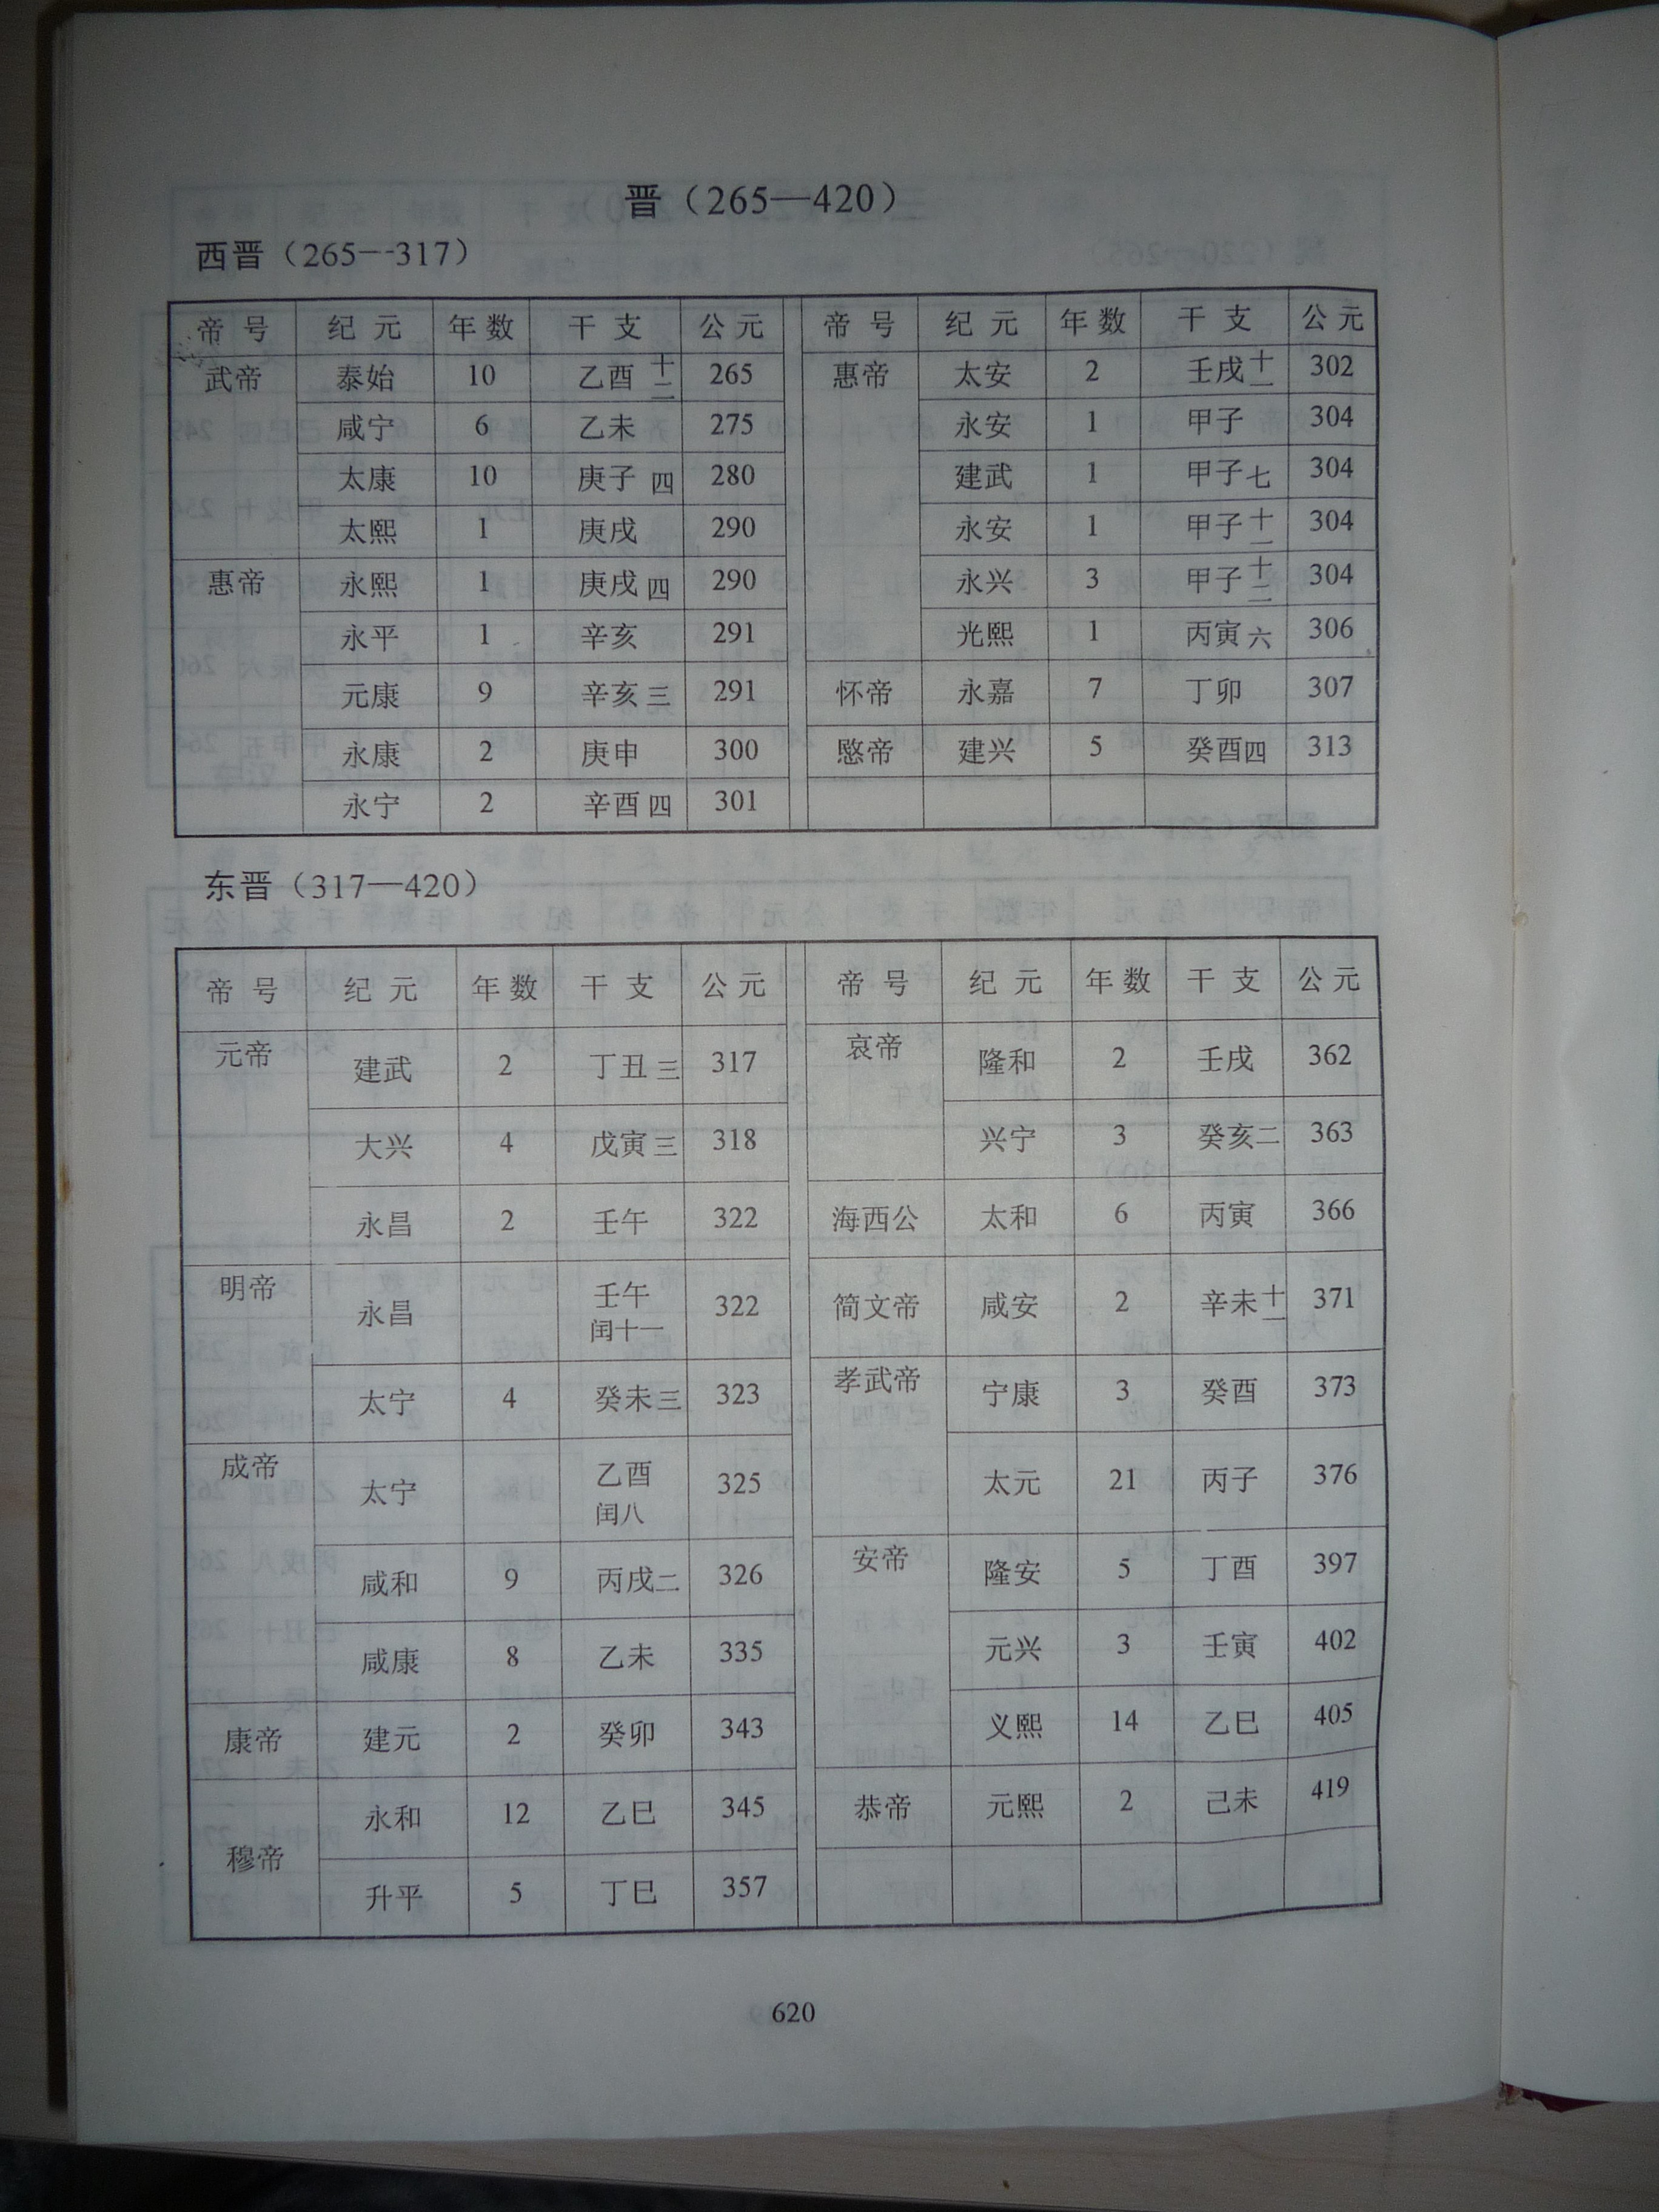 晋（265—420）
西晋（265--317）
帝号 纪元 年数 干支 公元 帝号 纪元 年数 干支 公元
武帝 泰始 10 乙酉十二 265 惠帝 太安 2 壬戌十一 302
咸宁 6 乙未 275 永安 1 甲子 304
太康 10 庚子四 280 建武 1 甲子七 304
太熙 1 庚戌 290 永安 1 甲子十一 304
惠帝 永熙 1 庚戌四 290 永兴 3 甲子十二 304
永平 1 辛亥 291 光熙 1 丙寅六 306
元康 9 辛亥三 291 怀帝 永嘉 7 丁卯 307
永康 2 庚申 300 愍帝 建兴 5 癸酉四 313
永宁 2 辛酉四 301
东晋（317—420）
帝号 纪元 年数 干支 公元 帝号 纪元 年数 干支 公元
元帝 建武 2 丁丑三 317 哀帝 隆和 2 壬戌 362
大兴 4 戊寅三 318 兴宁 3 癸亥二 363
永昌 2 壬午 322 海西公 太和 6 丙寅 366
明帝 永昌 壬午闰十一 322 简文帝 咸安 2 辛未十一 371
太宁 4 癸未三 323 孝武帝 宁康 3 癸酉 373
成帝 太宁 乙酉闰八 325 太元 21 丙子 376
咸和 9 丙戌二 326 安帝 隆安 5 丁酉 397
咸康 8 乙未 335 元兴 3 壬寅 402
康帝 建元 2 癸卯 343 义熙 14 乙巳 405
穆帝 永和 12 乙巳 345 恭帝 元熙 2 己未 419
升平 5 丁巳 357
620